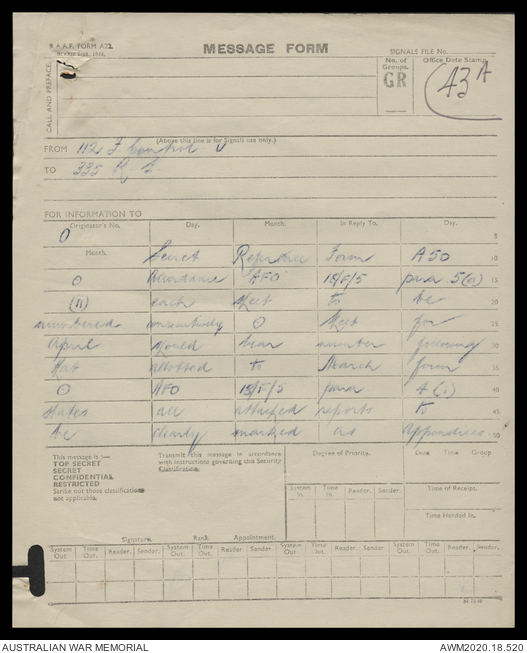 R.A.A.F. FORM A22.
MESSAGE FORM
SIGNALS FILE No.
CALL AND PREFACE.
No. of Groups.
GR
Office Date Stamp
43A
(Above this line is for Signals use only.)
FROM 112 F. Control
TO 335 R. S.
FOR INFORMATION TO
Originator's No. Day. Month. In Reply To. Day.
O 5
Month. Secret Reference Form A50 10
O Accordance AFO 18/F/5 para 5(a) 15
(11) each sheet to be 20
numbered consecutively O sheet for 25
April should bear number following 30
that allotted to March form 35
O AFO 18/F/5 para 4(i) 40
states all attached reports to 45
be clearly marked as appendices 50
This message is:—
TOP SECRET
SECRET
CONFIDENTIAL
RESTRICTED
Strike out those classifications not applicable.
Transmit this message in accordance with instructions governing this Security Classification.
Degree of Priority.
Date Time Group
System In. Time In. Reader. Sender.
Time of Receipt.
Time Handed In.
Signature. Rank. Appointment.
System Out. Time Out. Reader. Sender. System Out. Time Out. Reader. Sender. System Out. Time Out. Reader. Sender. System Out. Time Out. Reader. Sender.
AUSTRALIAN WAR MEMORIAL AWM2020.18.520